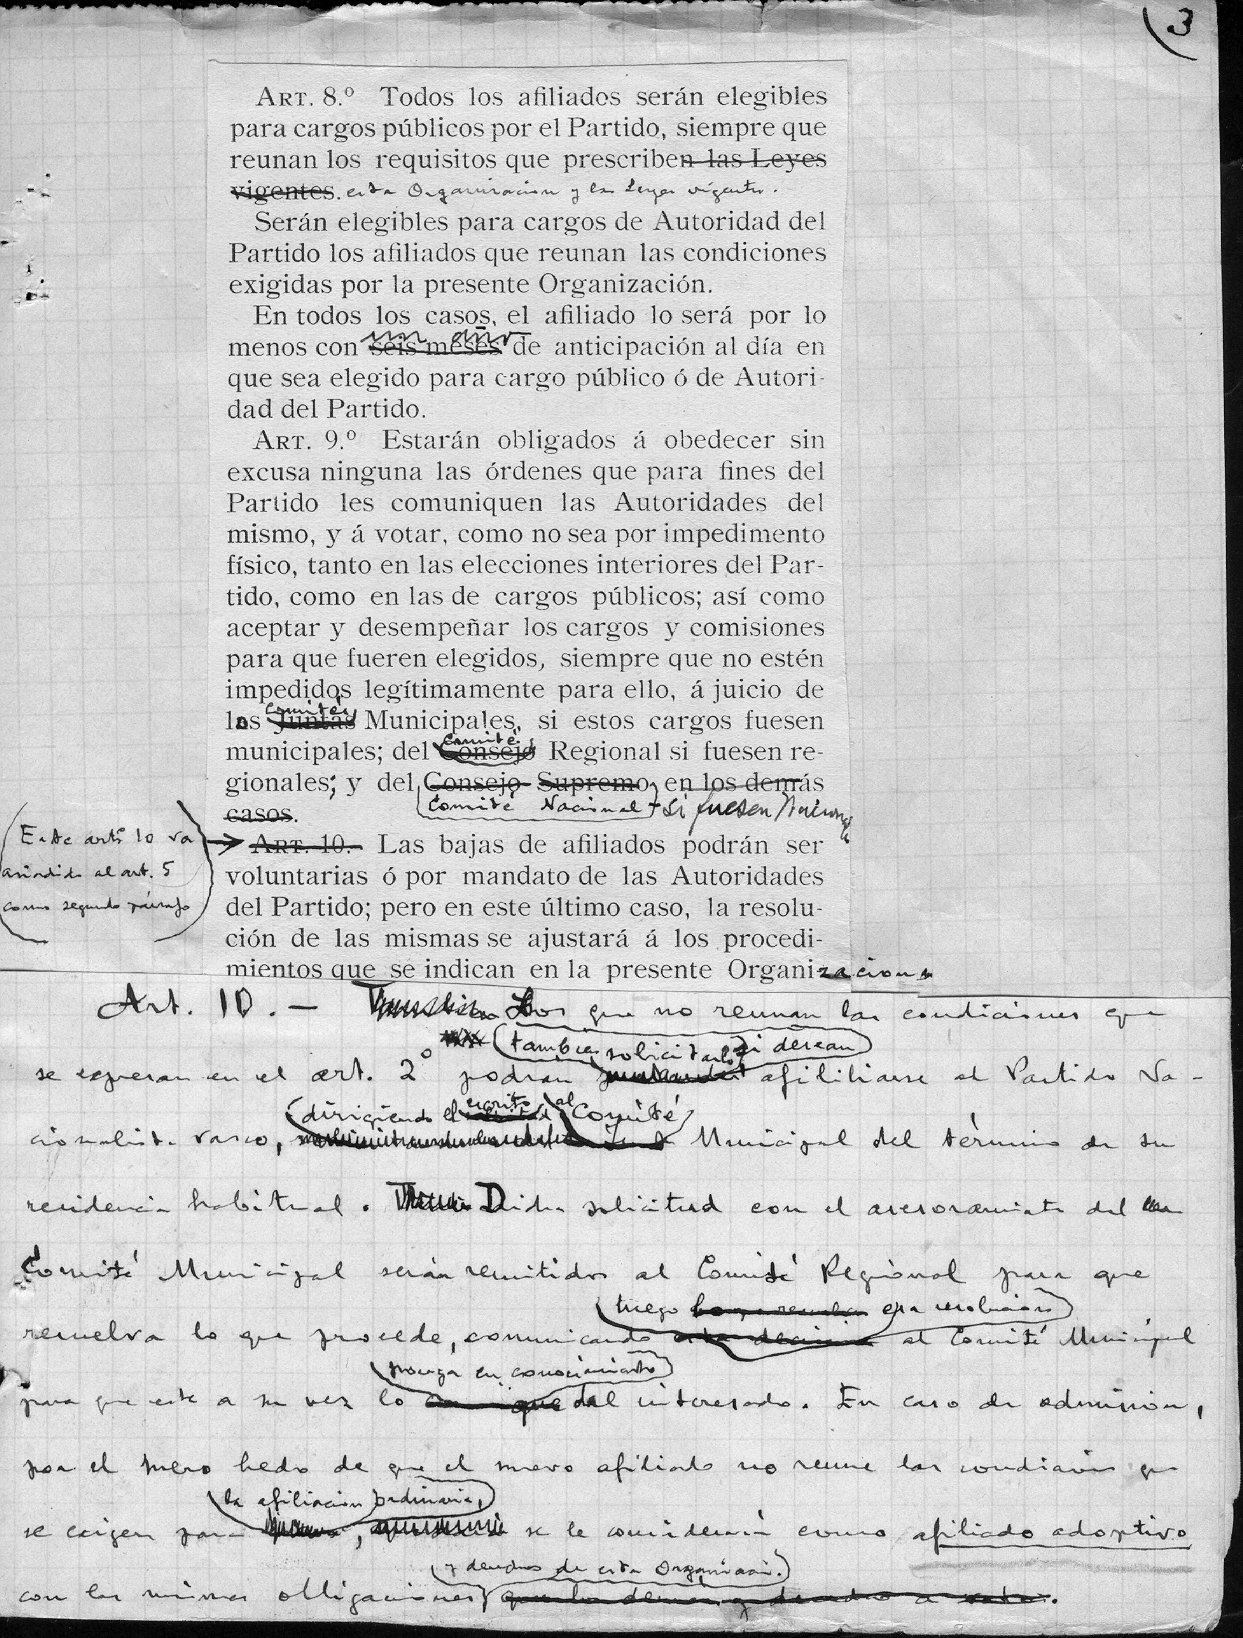 3
ART. 8.º Todos los afiliados serán elegibles
para cargos públicos por el Partido, siempre que
reunan los requisitos que prescriben las Leyes
vigentes. esta Organizacion y las Leyes vigentes.
Serán elegibles para cargos de Autoridad del
Partido los afiliados que reunan las condiciones
exigidas por la presente Organización.
En todos los casos, el afiliado lo será por lo
un año
menos con seis meses de anticipación al día en
que sea elegido para cargo público ó de Autori-
dad del Partido.
ART. 9.º Estarán obligados á obedecer sin
excusa ninguna las órdenes que para fines del
Partido les comuniquen las Autoridades del
mismo, y á votar, como no sea por impedimento
físico, tanto en las elecciones interiores del Par-
tido, como en las de cargos públicos; así como
aceptar y desempeñar los cargos y comisiones
para que fueren elegidos, siempre que no estén
impedidos legítimamente para ello, á juicio de
comités
los Juntas Municipales, si estos cargos fuesen
comité
municipales; del Consejo Regional si fuesen re-
gionales; y del Consejo Supremo en los demás
Comité Nacional si fuesen
casos.
Este artº 10 va
añadido al art. 5
como segundo párrafo
ART. 10.- Las bajas de afiliados podrán ser
voluntarias ó por mandato de las Autoridades
del Partido; pero en este último caso, la resolu-
ción de las mismas se ajustará á los procedi-
mientos que se indican en la presente Organizacion
Art. 10. — Los que no reunan las condiciones que
tambien solicitarlo si désean
se expresan en el art. 2º podrán afiliarse al Partido Na-
dirigiendo el escrito al Comité
cionalista Vasco, Municipal del término de su
residencia habitual. Dicha solicitud con el asesoramiento del
Comité Municipal serán remitidos al Comité Regional para que
luego esa resolución
resuelva lo que procede, comunicando esta decisión al Comité Municipal
ponga en conocimiento
para que este a su vez lo del interesado. En caso de admisión,
por el mero hecho de que el nuevo afiliado no reune las condiciones que
la afiliación ordinaria,
se exigen para se le considerará como afiliado adoptivo
y derechos de esta Organización.
con las mismas obligaciones que los demas y derechos a